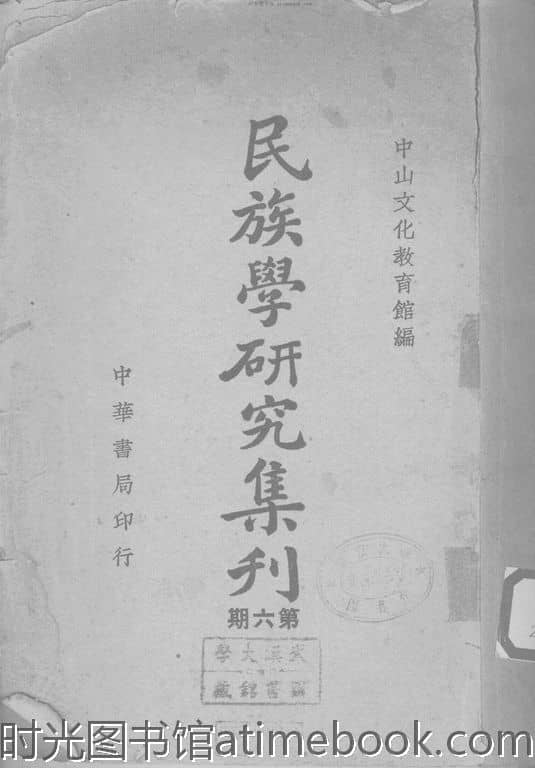 中山文化教育館編
民族學研究集刊
第六期
中華書局印行
武漢大學
圖書館藏
时光图书馆atimebook.com